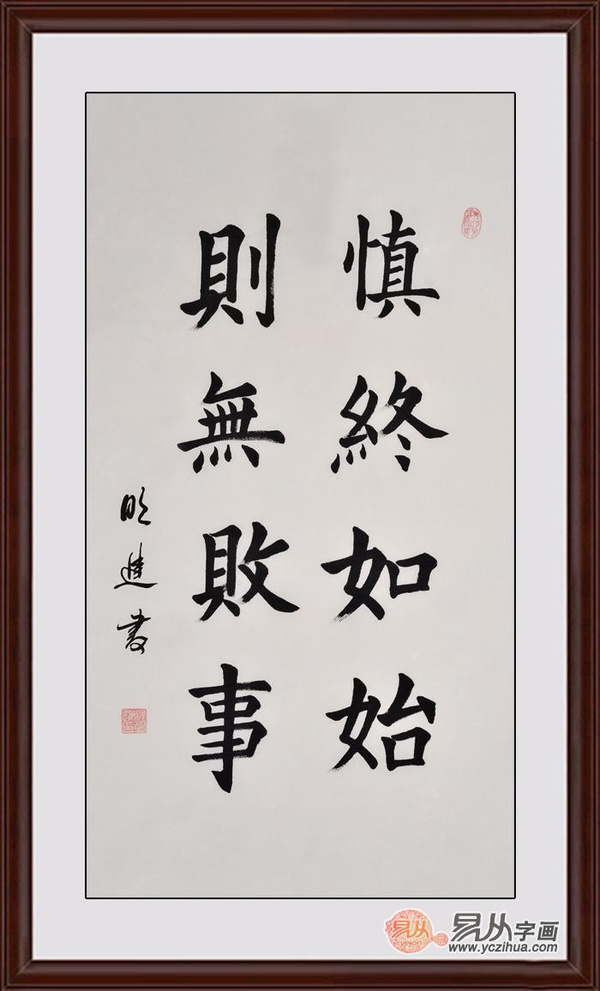 慎終如始
則無敗事
明進書
易从字画
www.yczihua.com